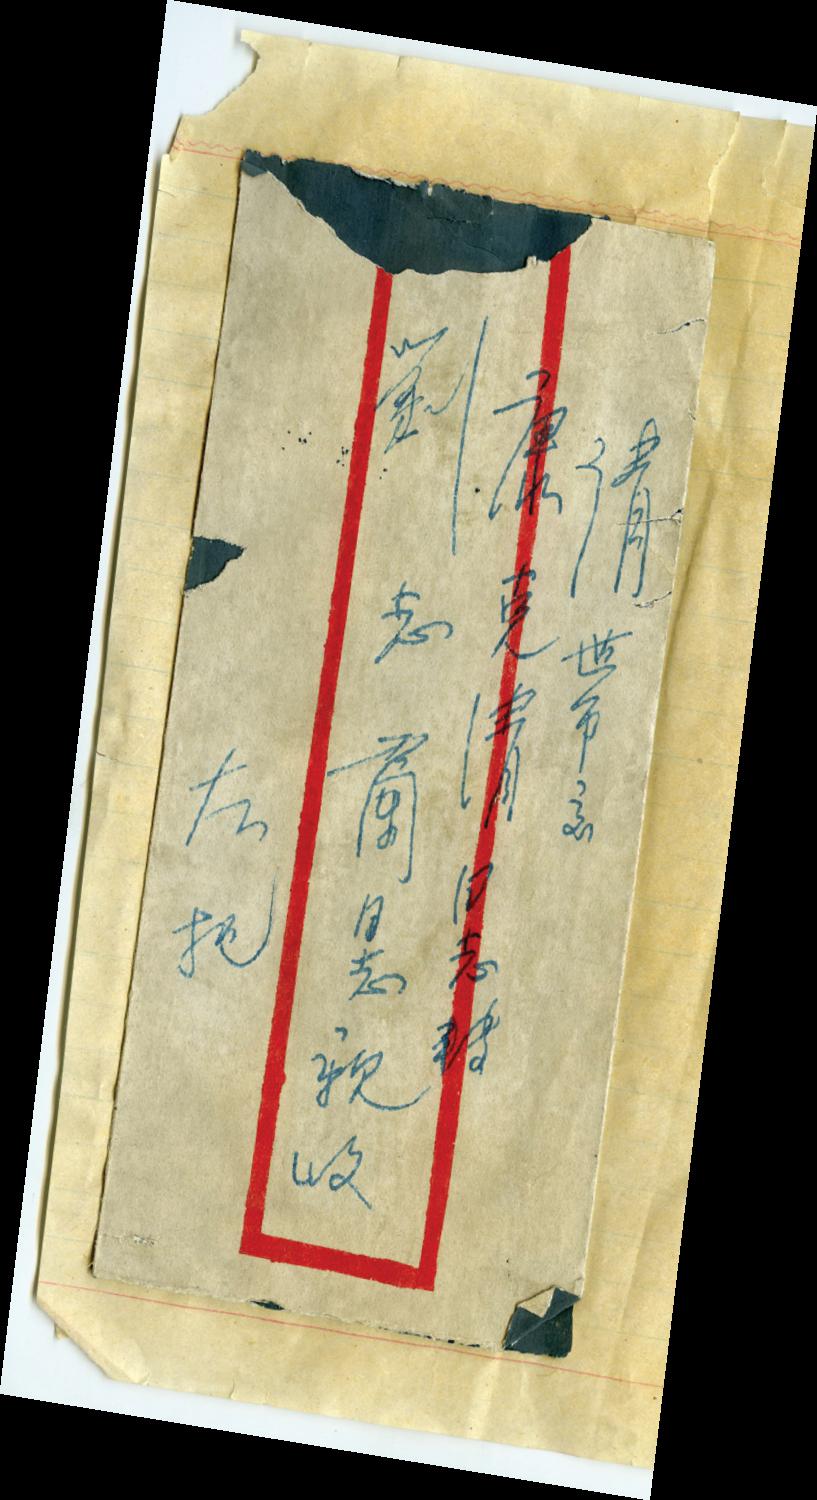 請帶
康克清同志轉
劉志蘭同志親收
左托